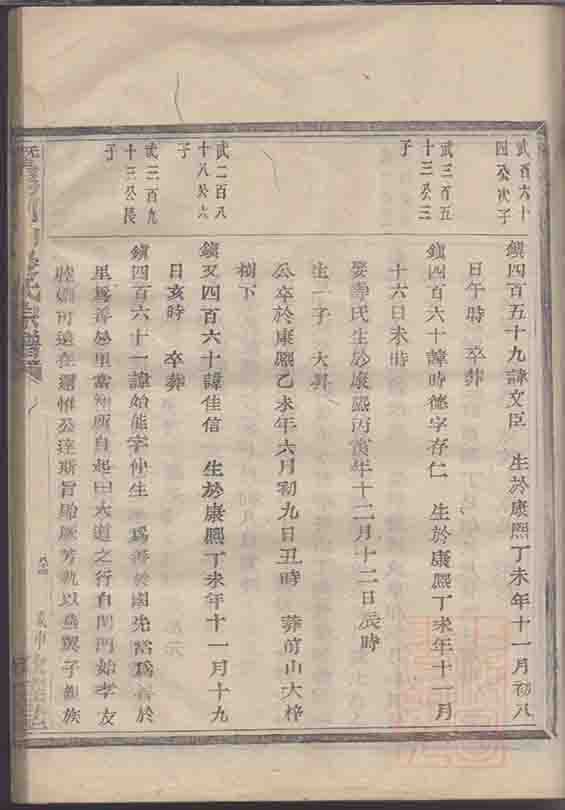 武百六十
四公次子
鎮四百五十九諱文臣 生於康熙丁未年十一月初八
日午時 卒葬
武三百五
十三公三
子
鎮四百六十諱時德字存仁 生於康熙丁未年十一月
十六日未時
娶 氏生於康熙丙寅年十二月十二日辰時
生一子 大
公卒於康熙乙未年六月初九日丑時 葬前山大梓
樹下
武二百八
十八公六
子
鎮又四百六十諱佳信 生於康熙丁未年十一月十九
日亥時 卒葬
武三百九
十三公長
子
鎮四百六十一諱始能字仲生 為善於國先當為善於
里為善於里當知所自起曰大道之行自閨門始孝友
睦婣可遠在邇惟公達斯旨貽厥芳軌以燕翼子 族
氏宗譜